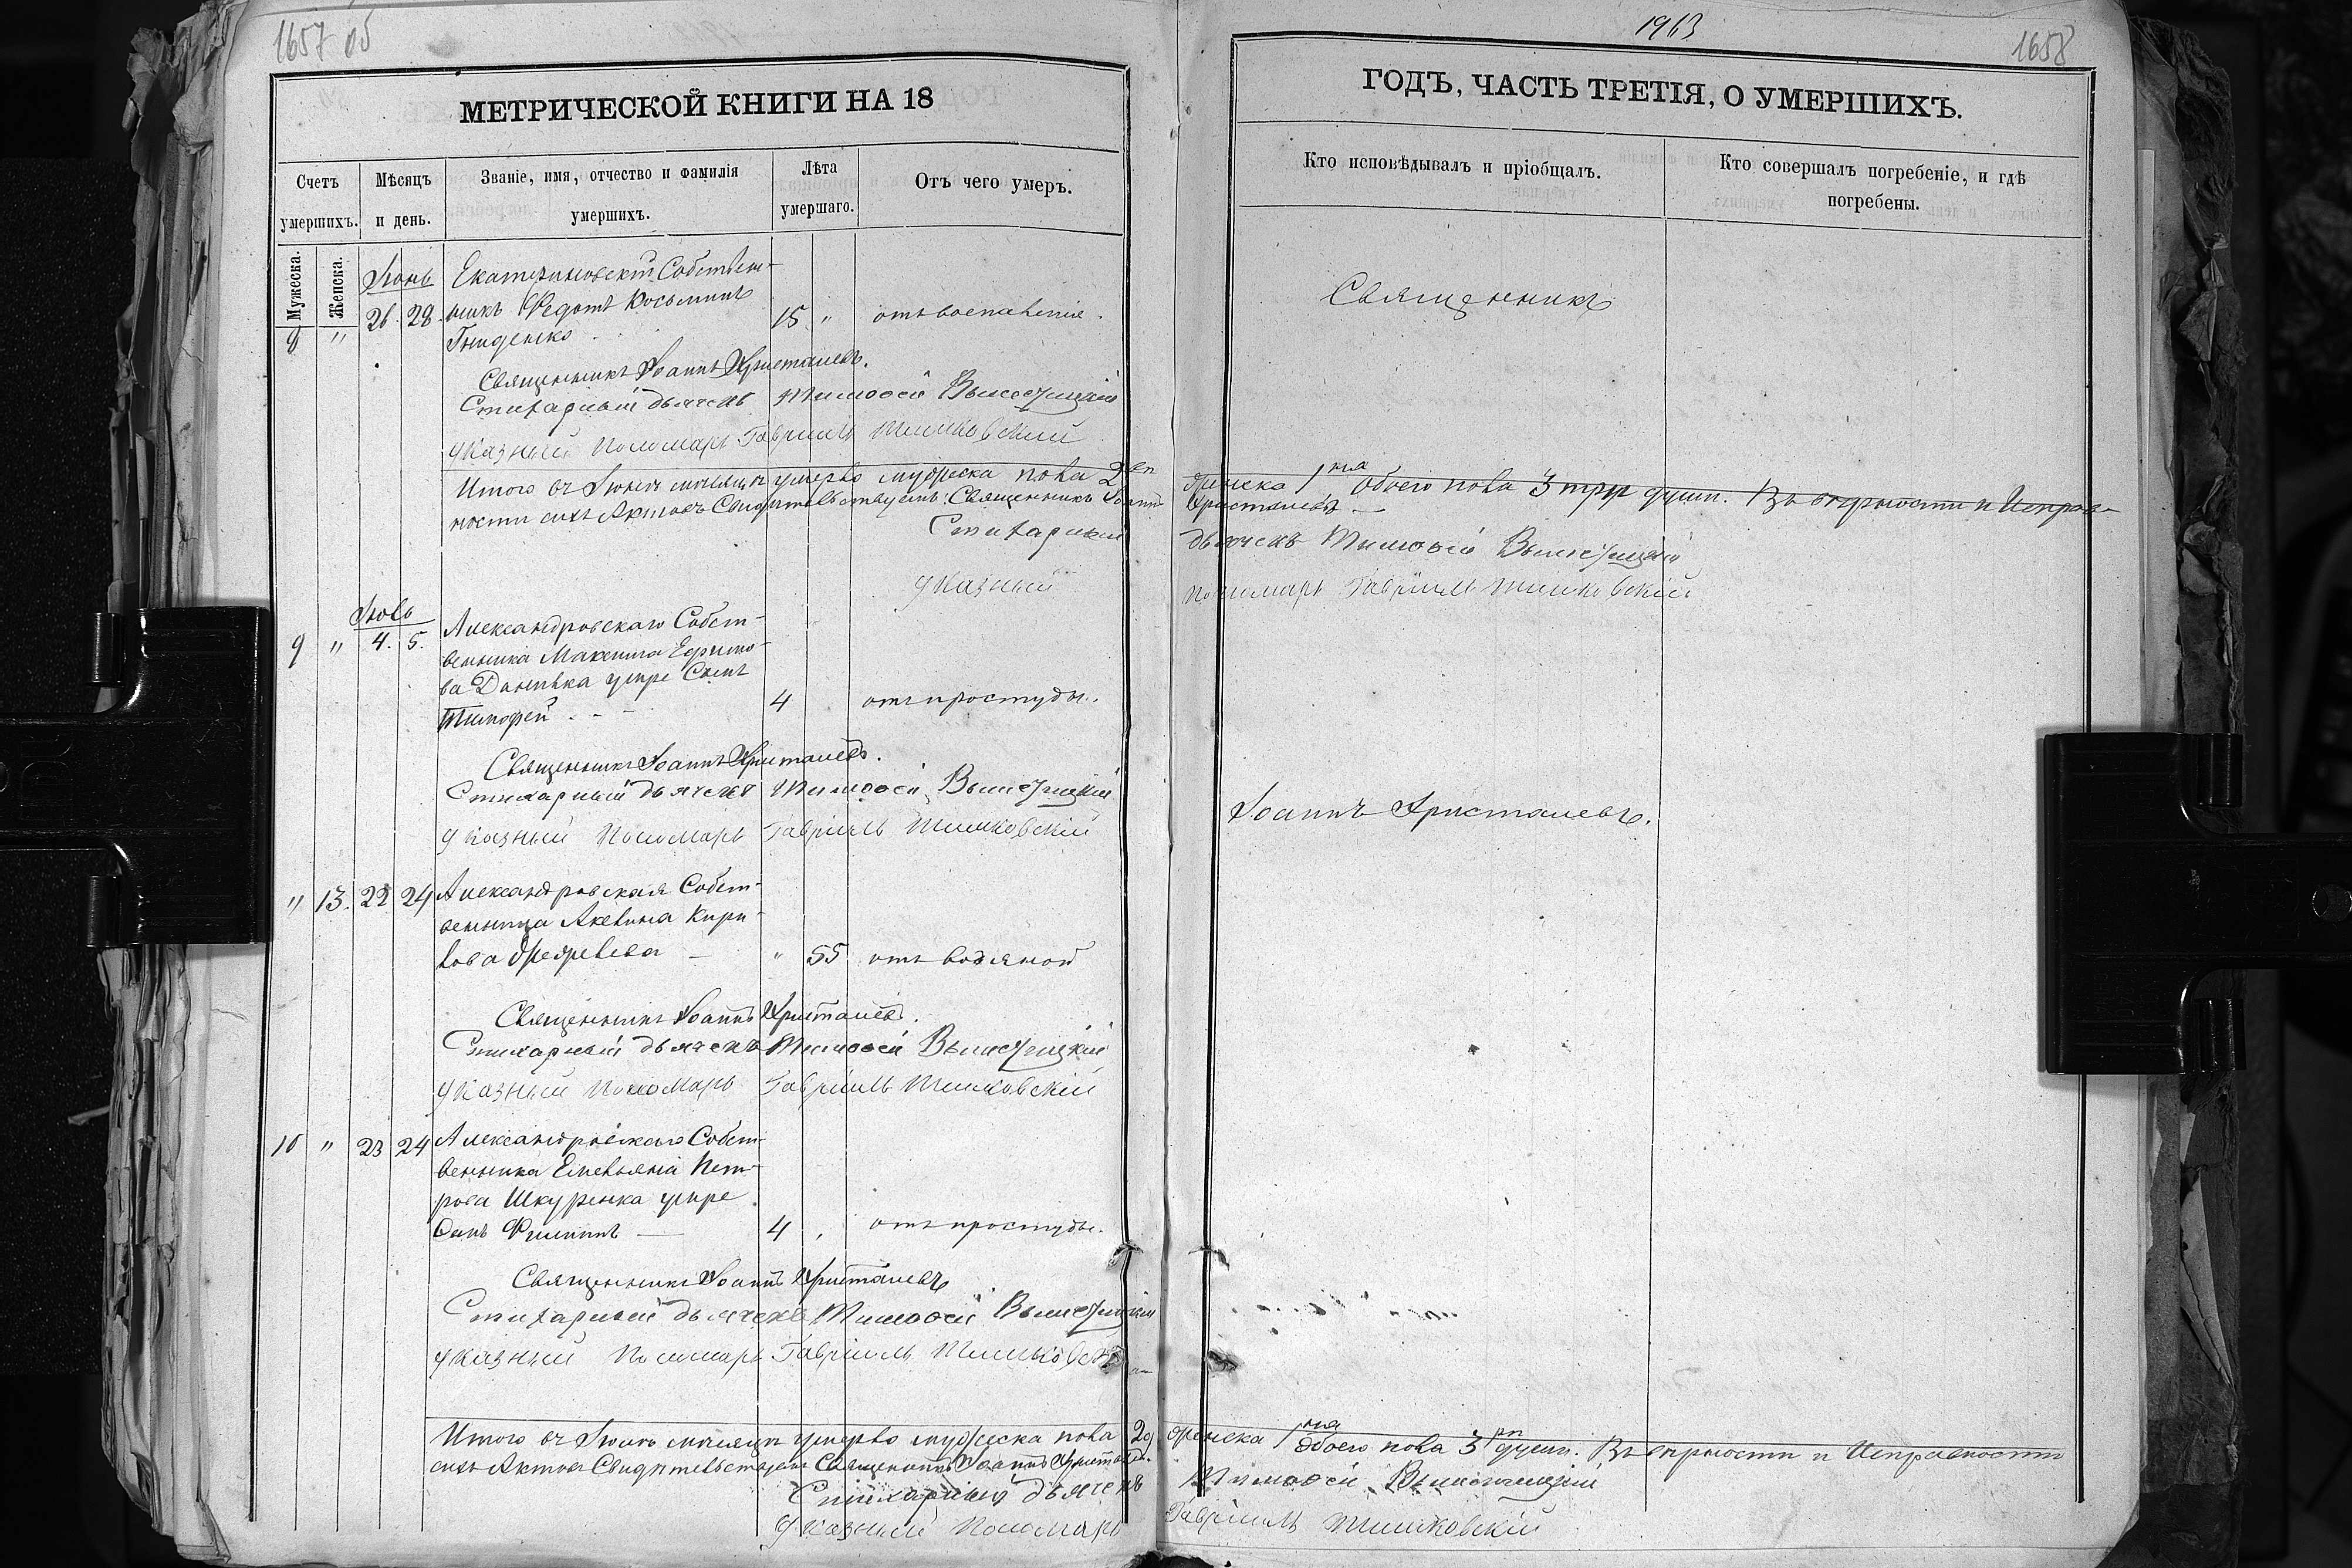 1657 об
МЕТРИЧЕСКОЙ КНИГИ НА 18
Счетъ умершихъ.
Мѣсяцъ и день.
Званіе, имя, отчество и фамилія умершихъ.
Лѣта умершаго.
Отъ чего умеръ.
Мужеска.
Женска.
Іюнь
Екатериновскій Собствен-
8 " 26. 28. никъ Ѳедотъ Косьминъ 15 " отъ воспаленія.
Гниденко
Священникъ Іоаннъ Христалевъ.
Стихарный дьячекъ Тимоѳей
указный Пономарь Гавріилъ Тишковскій
Итого въ Іюнѣ мѣсяцѣ умерло мужеска пола 2
ности сихъ Актовъ Свидѣтельствуемъ: Священникъ Іоаннъ
Стихарный
указный
Іюль
9 " 4. 5. Александровскаго Собст-
венника Максима Ефимо-
ва Данилка умре Сынъ
Тимофей 4 отъ простуды.
Священникъ Іоаннъ Христалевъ.
Стихарный дьячекъ Тимоѳей
указный Пономарь Гавріилъ Тишковскій
" 13. 22 24 Александровская Собст-
венница Акелина Кири-
лова " 55 отъ водяной
Священникъ Іоаннъ Христалевъ.
Стихарный дьячекъ Тимоѳей
указный Пономарь Гавріилъ Тишковскій
10 " 23 24 Александровскаго Собст-
венника Емельяна Пет-
рова Шкуренка умре
Сынъ Филиппъ 4 отъ простуды.
Священникъ Іоаннъ Христалевъ
Стихарный дьячекъ Тимоѳей
указный Пономарь Гавріилъ Тишковскій
Итого въ Іюлѣ мѣсяцѣ умерло мужеска пола 2
сихъ Актовъ Свидѣтельствуемъ Священникъ Іоаннъ Христалевъ.
Стихарный дьячекъ
указный Пономарь
1963
1658
ГОДЪ, ЧАСТЬ ТРЕТІЯ, О УМЕРШИХЪ.
Кто исповѣдывалъ и пріобщалъ.
Кто совершалъ погребеніе, и гдѣ погребены.
Священникъ
женска 1 обоего пола 3 три души. Въ вѣрности и Исправ-
Христалевъ
дьячекъ Тимоѳей
пономарь Гавріилъ Тишковскій
Іоаннъ Христалевъ.
женска 1 обоего пола 3 души. Въ вѣрности и Исправности
Тимоѳей
Гавріилъ Тишковскій